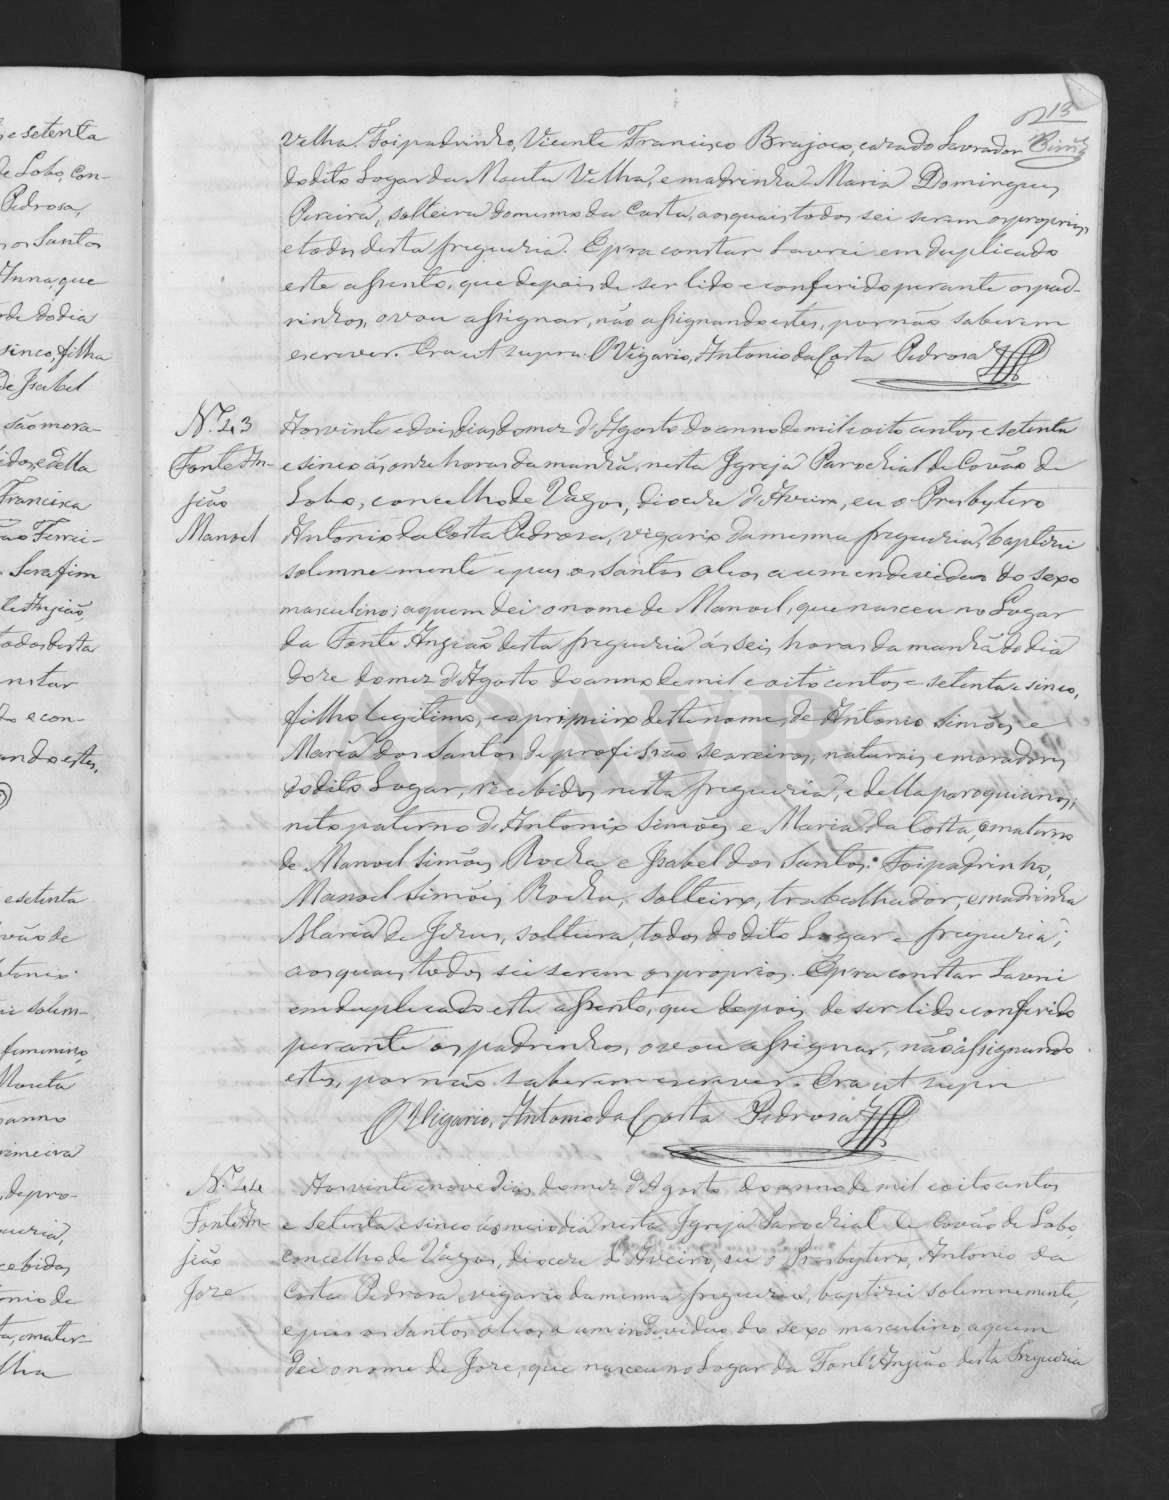 13
Velha. Foi padrinho, Vicente Francisco Brajoco, casado Lavrador
do dito Logar da Mouta Velha, e madrinha Maria Domingues
Pereira, solteira do mesmo da Costa, aos quais todos sei serem os proprios
e todos desta freguezia. E pra constar Lavrei em duplicado
este assento, que depois de ser lido e conferido perante os pad-
rinhos, o vou assignar, não assignando estes, por não saberem
escrever. Era ut supra. O Vigario, Antonio da Costa Pedrosa
Nº 43
Fonte An-
gião
Manoel
Aos vinte e dois dias do mez d'Agosto do anno de mil e oito centos e setenta
e sinco ás onze horas da manhã, nesta Igreja Parochial de Covão de
Lobo, concelho de Vagos, diocese d'Aveiro, eu o Presbytero
Antonio da Costa Pedrosa, vigario da mesma freguezia, baptizei
solemne mente e pus os Santos oleos a um endeviduo do sexo
masculino; a quem dei o nome de Manoel, que nasceu no Logar
da Fonte Angião desta freguezia ás seis horas da manhã do dia
doze do mez d'Agosto do anno de mil e oito centos e setenta e sinco,
filho legitimo, e o primeiro deste nome, de Antonio Simões e
Maria dos Santos de profissão seareiros, naturais e moradores
do dito Logar, recebidos nesta freguezia, e della paroquianos;
neto paterno d'Antonio Simões e Maria da Costa, e materno
de Manoel Simões Rocha e Isabel dos Santos. Foi padrinho,
Manoel Simões Rocha, solteiro, trabalhador, e madrinha
Maria de Jezus, solteira, todos do dito Logar e freguezia;
aos quais todos sei serem os proprios. E pra constar Lavrei
em duplicado este assento, que depois de ser lido e conferido
perante os padrinhos, o vou assignar, não assignando
estes, por não saberem escrever. Era ut supra
O Vigario, Antonio da Costa Pedrosa
Nº 44
Fonte An-
gião
Joze
Aos vinte e nove dias do mez d'Agosto do anno de mil e oito centos
e setenta e sinco ás meio dia nesta Igreja Parochial de Covão de Lobo,
concelho de Vagos, diocese d'Aveiro, eu o Presbytero, Antonio da
Costa Pedrosa, vigario da mesma freguezia, baptizei solemnemente,
e pus os santos oleos a um individuo do sexo masculino, a quem
dei o nome de Joze, que nasceu no Logar da Font'Angião desta freguezia
e setenta
de Lobo, Con-
Pedrosa,
os Santos
Anna, que
de do dia
sinco, filha
de Isabel
são mora-
e della
Francisca
Ferrei-
Serafim
Angião,
todos desta
constar
do e con-
ando estes,
e setenta
vão de
ntonio
solem-
femenino
Mouta
anno
rimeira
de pro-
guezia,
cebidos
onio de
ta, mater-
lha
ADAVR